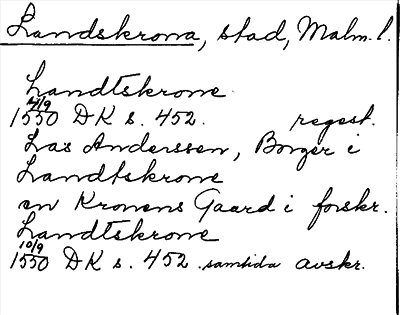 Landskrona, stad, Malm. l.
Landtskrone
4/9
1550 DK s. 452. regest.
Las Anderssen, Borger i
Landtskrone
en Kronens Gaard i forskr.
Landtskrone
10/9
1550 DK s. 452. samtida avskr.